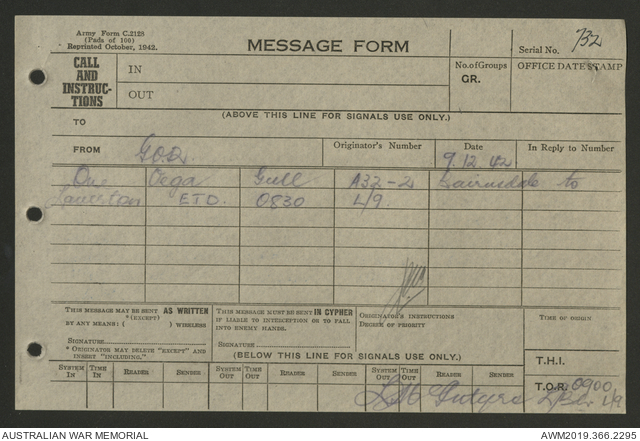 Army Form C.2128
(Pads of 100)
Reprinted October, 1942.
MESSAGE FORM
Serial No. 732
CALL AND INSTRUC-TIONS
IN
OUT
No. of Groups
GR.
OFFICE DATE STAMP
(ABOVE THIS LINE FOR SIGNALS USE ONLY.)
TO
FROM
Originator's Number
Date
In Reply to Number
9.12.42
One Vega Gull A32-2 Bairnsdale to
ETD. 0830 4/9
THIS MESSAGE MAY BE SENT AS WRITTEN
*(EXCEPT)
BY ANY MEANS: ( ) WIRELESS
SIGNATURE
* ORIGINATOR MAY DELETE "EXCEPT" AND
INSERT "INCLUDING."
THIS MESSAGE MUST BE SENT IN CYPHER
IF LIABLE TO INTERCEPTION OR TO FALL
INTO ENEMY HANDS.
SIGNATURE
ORIGINATOR'S INSTRUCTIONS
DEGREE OF PRIORITY
TIME OF ORIGIN
(BELOW THIS LINE FOR SIGNALS USE ONLY.)
T.H.I.
SYSTEM IN TIME IN READER SENDER SYSTEM OUT TIME OUT READER SENDER SYSTEM OUT TIME OUT READER SENDER
T.O.R. 0900
4/9
AUSTRALIAN WAR MEMORIAL
AWM2019.366.2295